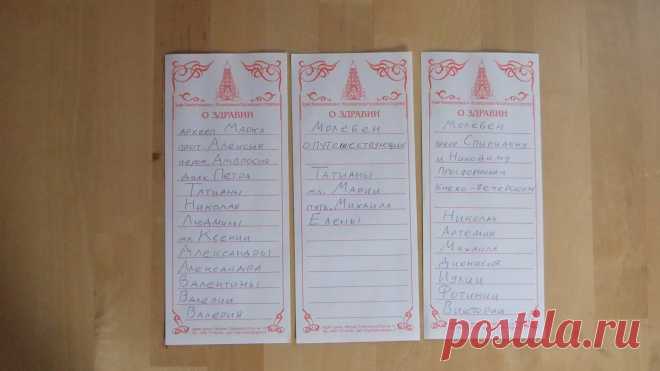 О ЗДРАВИИ
архиеп. Марка
прот. Алексия
иером. Амвросия
диак. Петра
Татианы
Николая
Людмилы
мл. Ксении
Александры
Александра
Валентины
Валерии
Валерия
О ЗДРАВИИ
Молебен
о путешествующих
Татианы
мл. Марии
путь. Михаила
Елены
О ЗДРАВИИ
Молебен
Спиридону
и Никодиму
просфорникам
Киево-Печерским
Николая
Артемия
Михаила
Дионисия
Иулии
Фотинии
Виктории
postila.ru